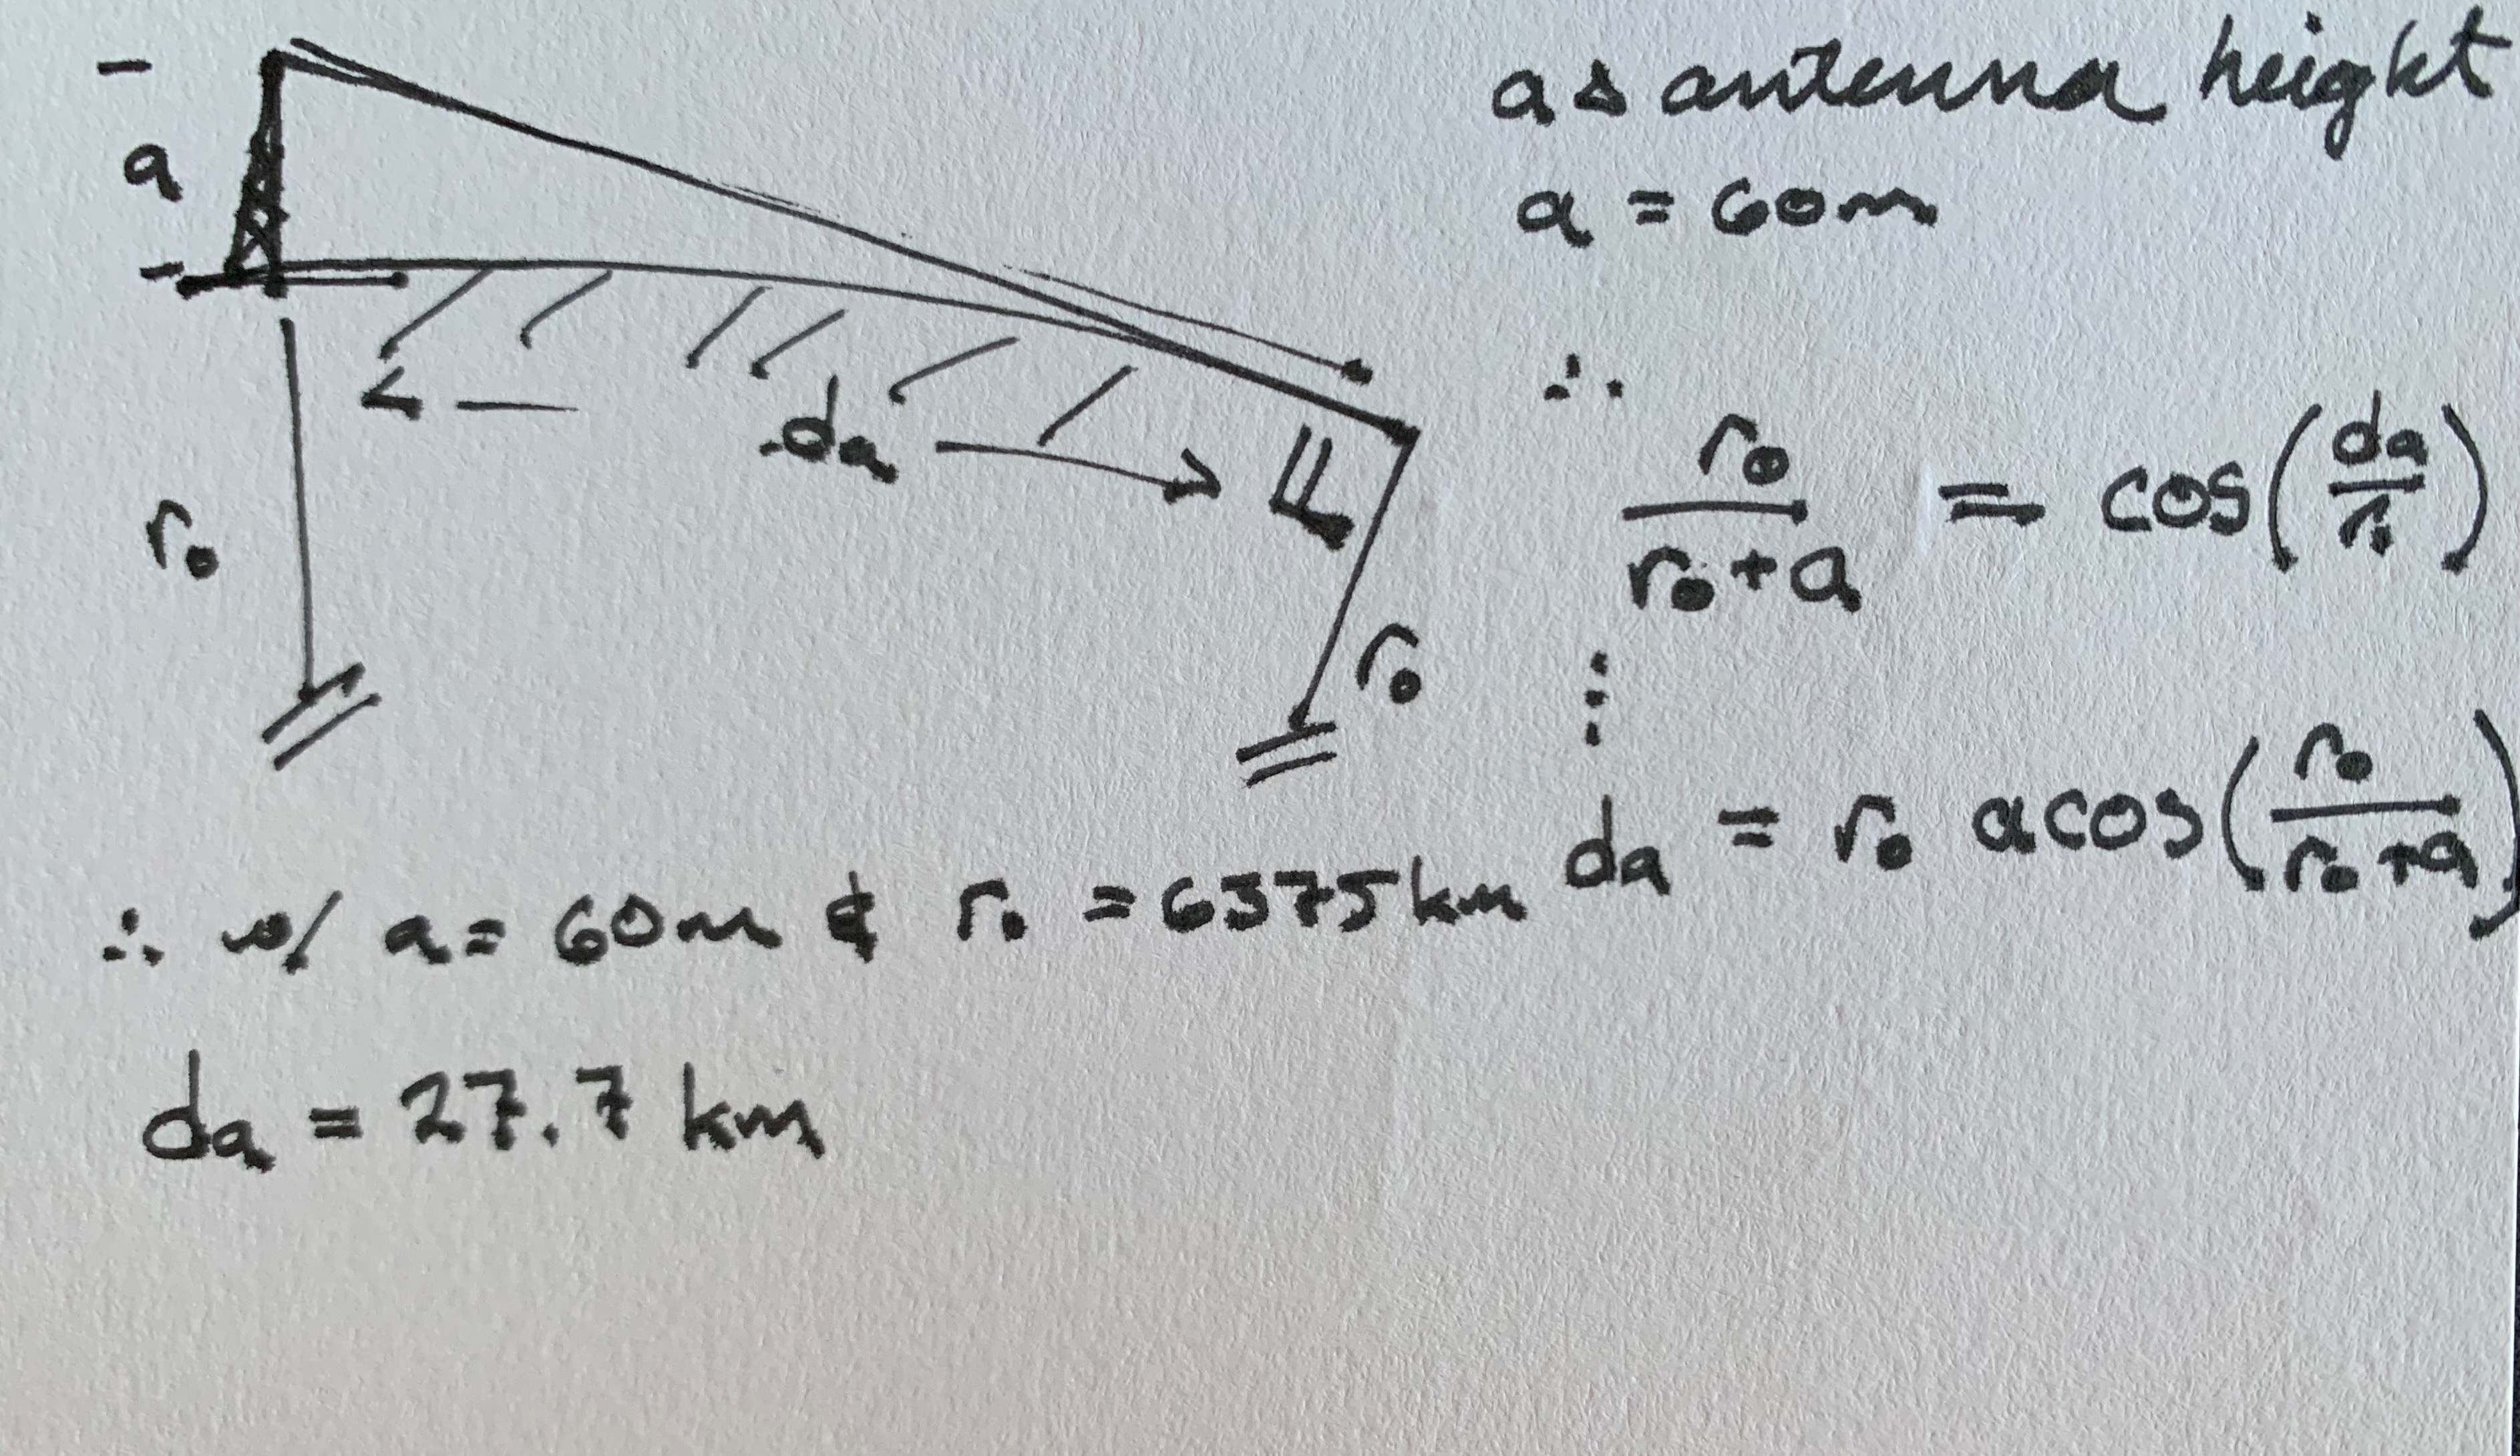 a ≙ antenna height
a
a = 60m
∴
r₀ / (r₀ + a) = cos(da / r₀)
da
r₀
r₀
⋮
da = r₀ acos(r₀ / (r₀ + a))
∴ w/ a = 60m & r₀ = 6375km
da = 27.7 km